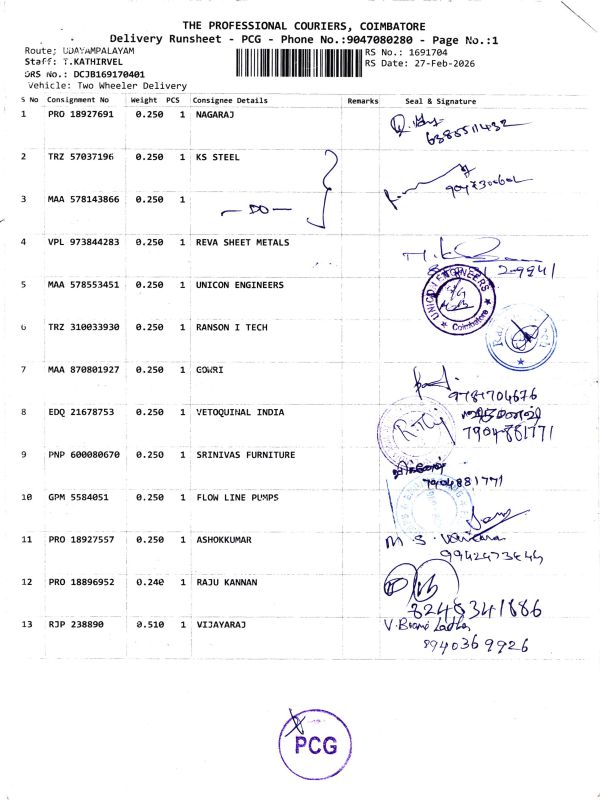 THE PROFESSIONAL COURIERS, COIMBATORE
Delivery Runsheet - PCG - Phone No.:9047080280 - Page No.:1
Route: UDAYAMPALAYAM
RS No.: 1691704
Staff: T.KATHIRVEL
RS Date: 27-Feb-2026
DRS No.: DCJB169170401
Vehicle: Two Wheeler Delivery
S No Consignment No Weight PCS Consignee Details Remarks Seal & Signature
1 PRO 18927691 0.250 1 NAGARAJ
6385511432
2 TRZ 57037196 0.250 1 KS STEEL
3 MAA 578143866 0.250 1 — DO —
4 VPL 973844283 0.250 1 REVA SHEET METALS
5 MAA 578553451 0.250 1 UNICON ENGINEERS
UNICON ENGINEERS
Coimbatore
6 TRZ 310033930 0.250 1 RANSON I TECH
7 MAA 870801927 0.250 1 GOWRI
9787704676
8 EDQ 21678753 0.250 1 VETOQUINAL INDIA
7904881771
9 PNP 600080670 0.250 1 SRINIVAS FURNITURE
7904881771
10 GPM 5584051 0.250 1 FLOW LINE PUMPS
11 PRO 18927557 0.250 1 ASHOKKUMAR
M. S.
12 PRO 18896952 0.240 1 RAJU KANNAN
8248341886
13 RJP 238890 0.510 1 VIJAYARAJ
8940369926
PCG